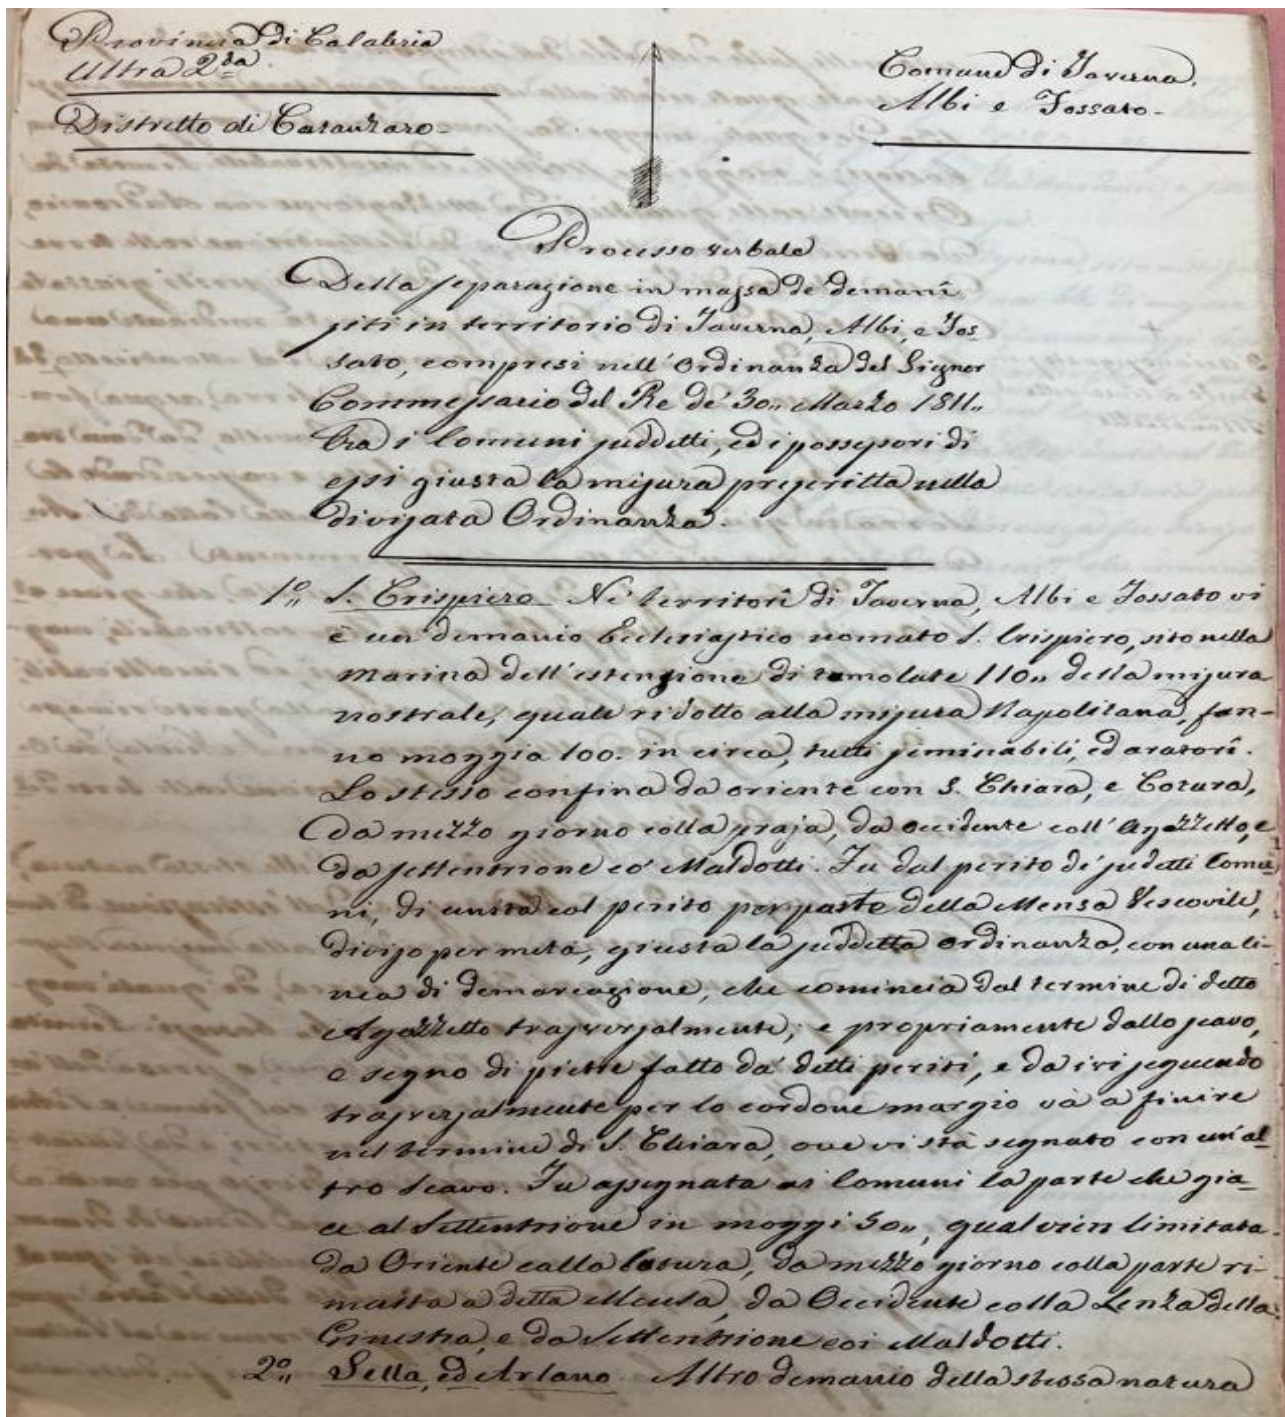 Provincia di Calabria
Ultra 2.da
Distretto di Catanzaro-
Comune di Taverna,
Albi e Fossato-
Processo verbale
Della separazione in massa de' demanî
siti in territorio di Taverna, Albi, e Fos
sato, compresi nell'Ordinanza del Signor
Commessario del Re de' 30,, Marzo 1811,,
tra i Comuni suddetti, ed i possessori di
essi giusta la misura prescritta nella
divisata Ordinanza.
1.o,, S. Crispiero Ne' territorî di Taverna, Albi e Fossato vi
è un demanio Ecclesiastico nomato S. Crispiero, sito nella
Marina dell'estenzione di tomolate 110,, della misura
nostrale, quale ridotto alla misura Napolitana, fan-
no moggia 100. in circa, tutti seminabili, ed aratorî.
Lo stesso confina da oriente con S. Chiara, e Cotura,
da mezzo giorno colla praja, da occidente coll'Agazzetto, e
da settentrione co' Maldotti. Fu dal perito de' sudetti Comu
ni, di unità col perito per parte della Mensa Vescovile,
diviso per metà, giusta la suddetta ordinanza, con una li-
nea di demarcazione, che comincia dal termine di detto
Agazzetto trasversalmente, e propriamente dallo scavo,
e segno di pietre fatto da' detti periti, e da ivi seguendo
trasversalmente per lo cordone margio và a finire
nel termine di S. Chiara, ove vi stà segnato con un'al
tro scavo. Fu assegnata ai Comuni la parte che gia-
ce al Settentrione in moggi 50,, qual vien limitata
da Oriente colla Cotura, da mezzo giorno colla parte ri-
masta a detta Mensa, da Occidente colla Lenza della
Ginestra, e da Settentrione coi Maldotti.
2.o,, Sella, ed Arlano. Altro demanio della stessa natura